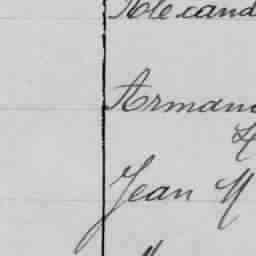 Alexand
Arman
Jean M